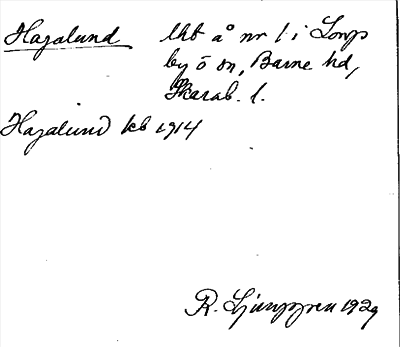 Hagalund lht å nr 1 i Longs
by ö sn, Barne hd,
Skarab. l.
Hagalund kb 1914
R. Ljunggren 1929